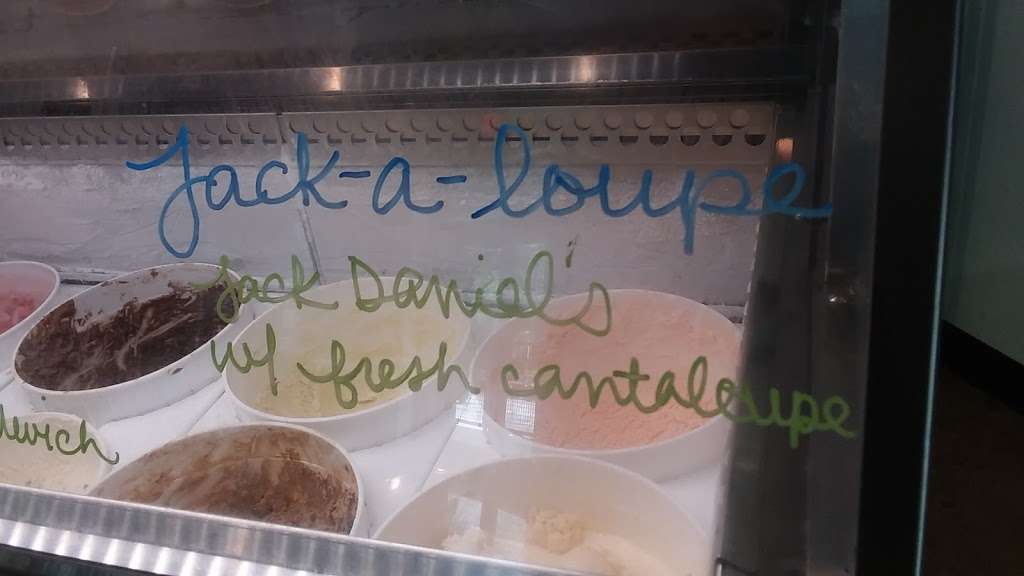 Jack-a-loupe
Jack Daniel's
w/ fresh cantaloupe